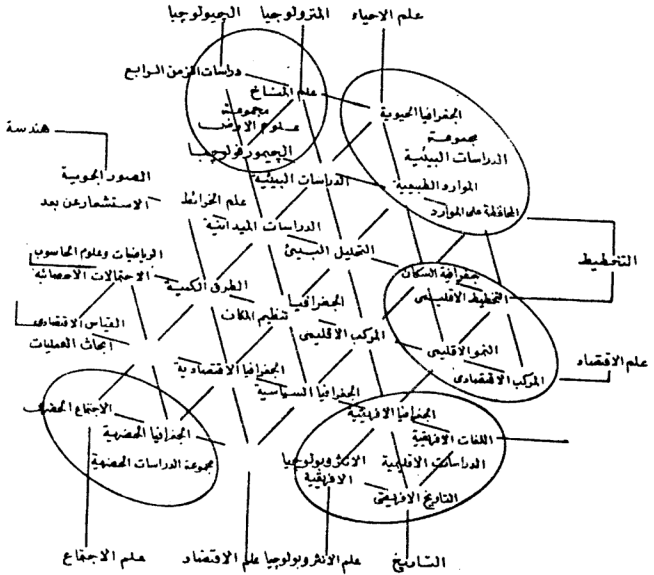 علم الاحياء
المترولوجيا
الجيولوجيا
دراسات الزمن الرابع
علم المناخ
مجموعة
علوم الارض
الجيمورفولوجيا
الجغرافيا الحيوية
مجموعة
الدراسات البيئية
الموارد الطبيعية
المحافظة على الموارد
هندسة
الصور الجوية
الاستشعار عن بعد
علم الخرائط
الدراسات البيئية
الدراسات الميدانية
التحليل البيئي
التخطيط
الرياضيات وعلوم الحاسوب
الاحتمالات الاحصائية
الطرق الكمية
الجغرافيا
تنظيم المكان
المركب الاقليمي
جغرافية السكان
التخطيط الاقليمي
القياس الاقتصادي
ابحاث العمليات
الجغرافيا الاقتصادية
الجغرافيا السياسية
النمو الاقليمي
المركب الاقتصادي
علم الاقتصاد
الاجتماع الحضري
الجغرافيا الحضرية
مجموعة الدراسات الحضرية
الجغرافيا الافريقية
اللغات الافريقية
الدراسات الاقليمية
الانثروبولوجيا
الافريقية
التاريخ الافريقي
علم الاجتماع
علم الاقتصاد
علم الانثروبولوجيا
التاريخ